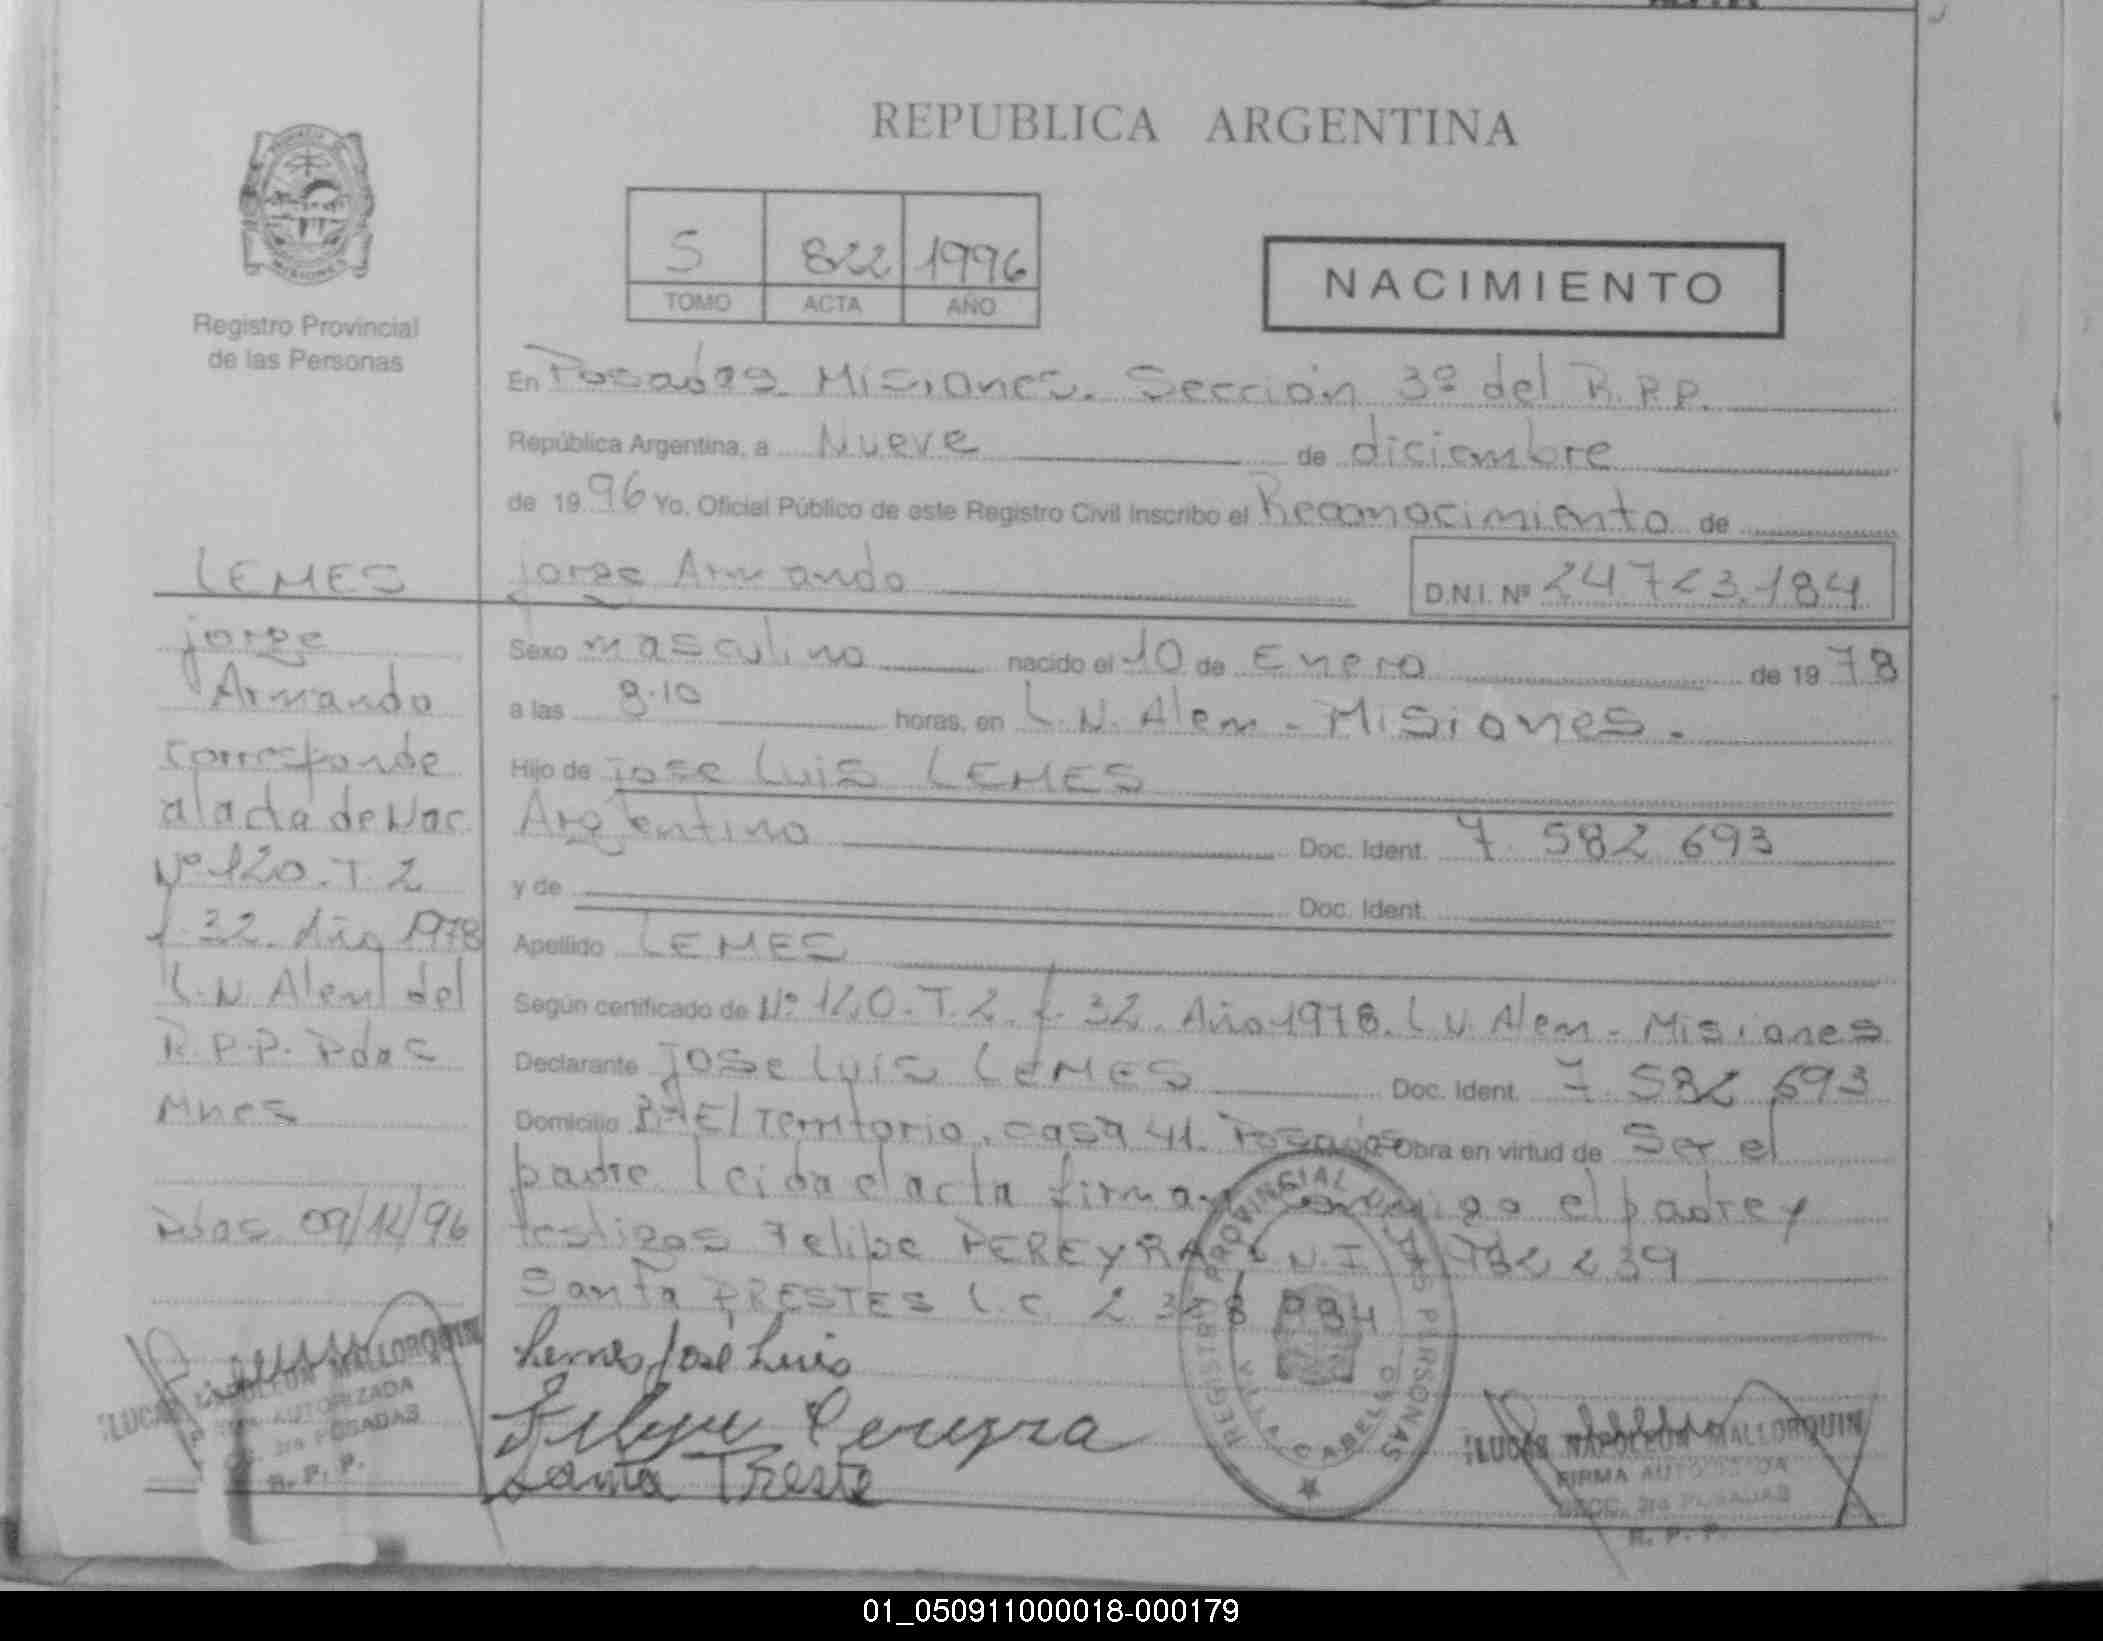 REPUBLICA ARGENTINA
5 822 1996
TOMO ACTA AÑO
NACIMIENTO
Registro Provincial
de las Personas
En Posadas Misiones. Sección 3º del R.P.P.
República Argentina, a Nueve de diciembre
de 1996 Yo, Oficial Público de este Registro Civil Inscribo el Reconocimiento de
Jorge Armando D.N.I. Nº 24723.184
Sexo masculino nacido el 10 de Enero de 1978
a las 8.10 horas, en L.N. Alem - Misiones.
Hijo de Jose Luis LEMES
Argentino Doc. Ident. 7 582 693
y de Doc. Ident.
Apellido LEMES
Según certificado de Nº 120. T. 2. f. 32. Año 1978. L.N. Alem - Misiones
Declarante Jose Luis LEMES Doc. Ident. 7 582 693
Domicilio El Territorio, casa 41. Posadas Obra en virtud de Ser el
padre Leida el acta firman conmigo el padre y
testigos Felipe PEREYRA
Santa PRESTES L.C. 2
Lemes José Luis
Felipe Pereyra
Santa Preste
LEMES
Jorge
Armando
Corresponde
al acta de Nac.
Nº 120. T. 2
f. 32. Año 1978
L.N. Alem del
R.P.P. Pdas
Mnes
Pdas 09/12/96
LUCAS NAPOLEON MALLORQUIN
FIRMA AUTORIZADA
3ra POSADAS
R. P. P.
REGISTRO PROVINCIAL DE LAS PERSONAS
VILLA CABELLO
LUCAS NAPOLEON MALLORQUIN
FIRMA AUTORIZADA
SECC. 3ra POSADAS
R. P. P.
01_050911000018-000179